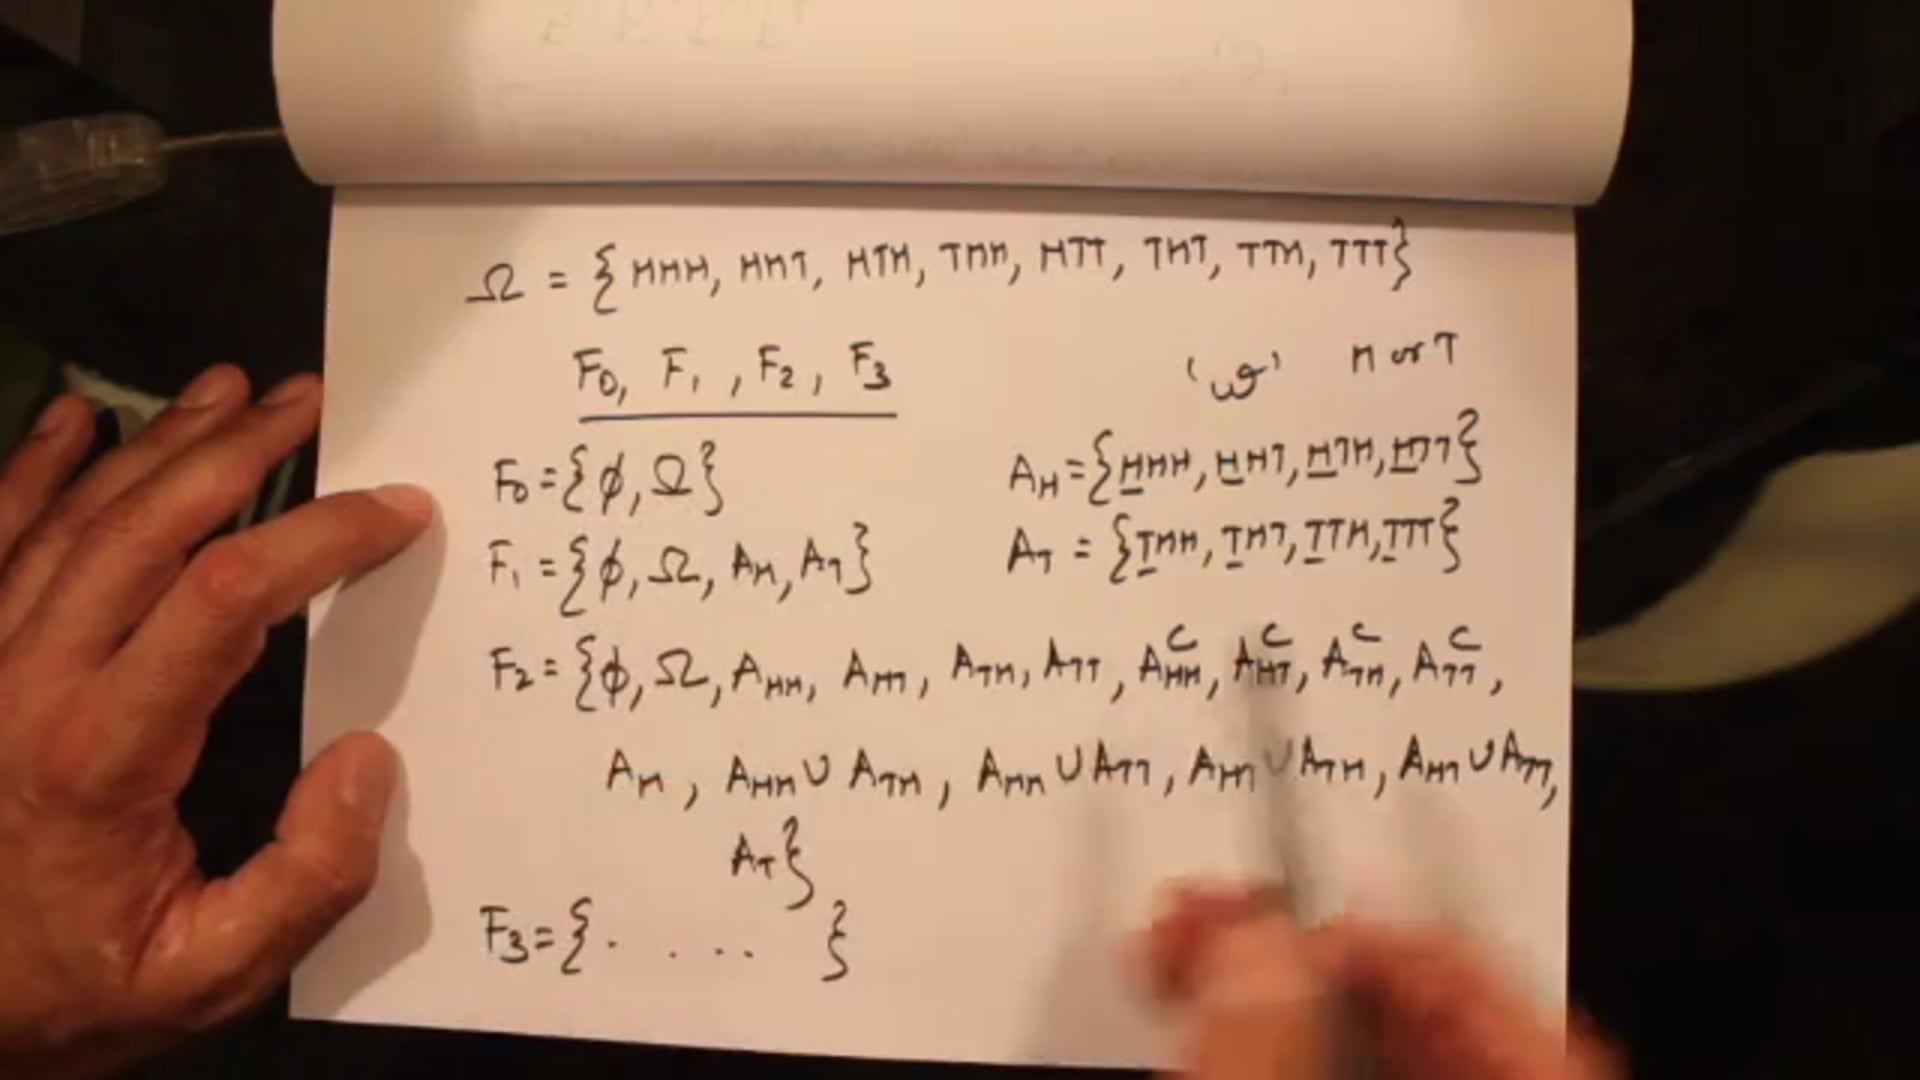 Ω = {HHH, HHT, HTH, THH, HTT, THT, TTH, TTT}
F₀, F₁, F₂, F₃
'ω' H or T
F₀ = {ϕ, Ω}
A_H = {HHH, HHT, HTH, HTT}
F₁ = {ϕ, Ω, A_H, A_T}
A_T = {THH, THT, TTH, TTT}
F₂ = {ϕ, Ω, A_HH, A_HT, A_TH, A_TT, A_HH^C, A_HT^C, A_TH^C, A_TT^C,
A_H, A_HH ∪ A_TH, A_HH ∪ A_TT, A_HT ∪ A_TH, A_HT ∪ A_TT,
A_T}
F₃ = {. . . . }